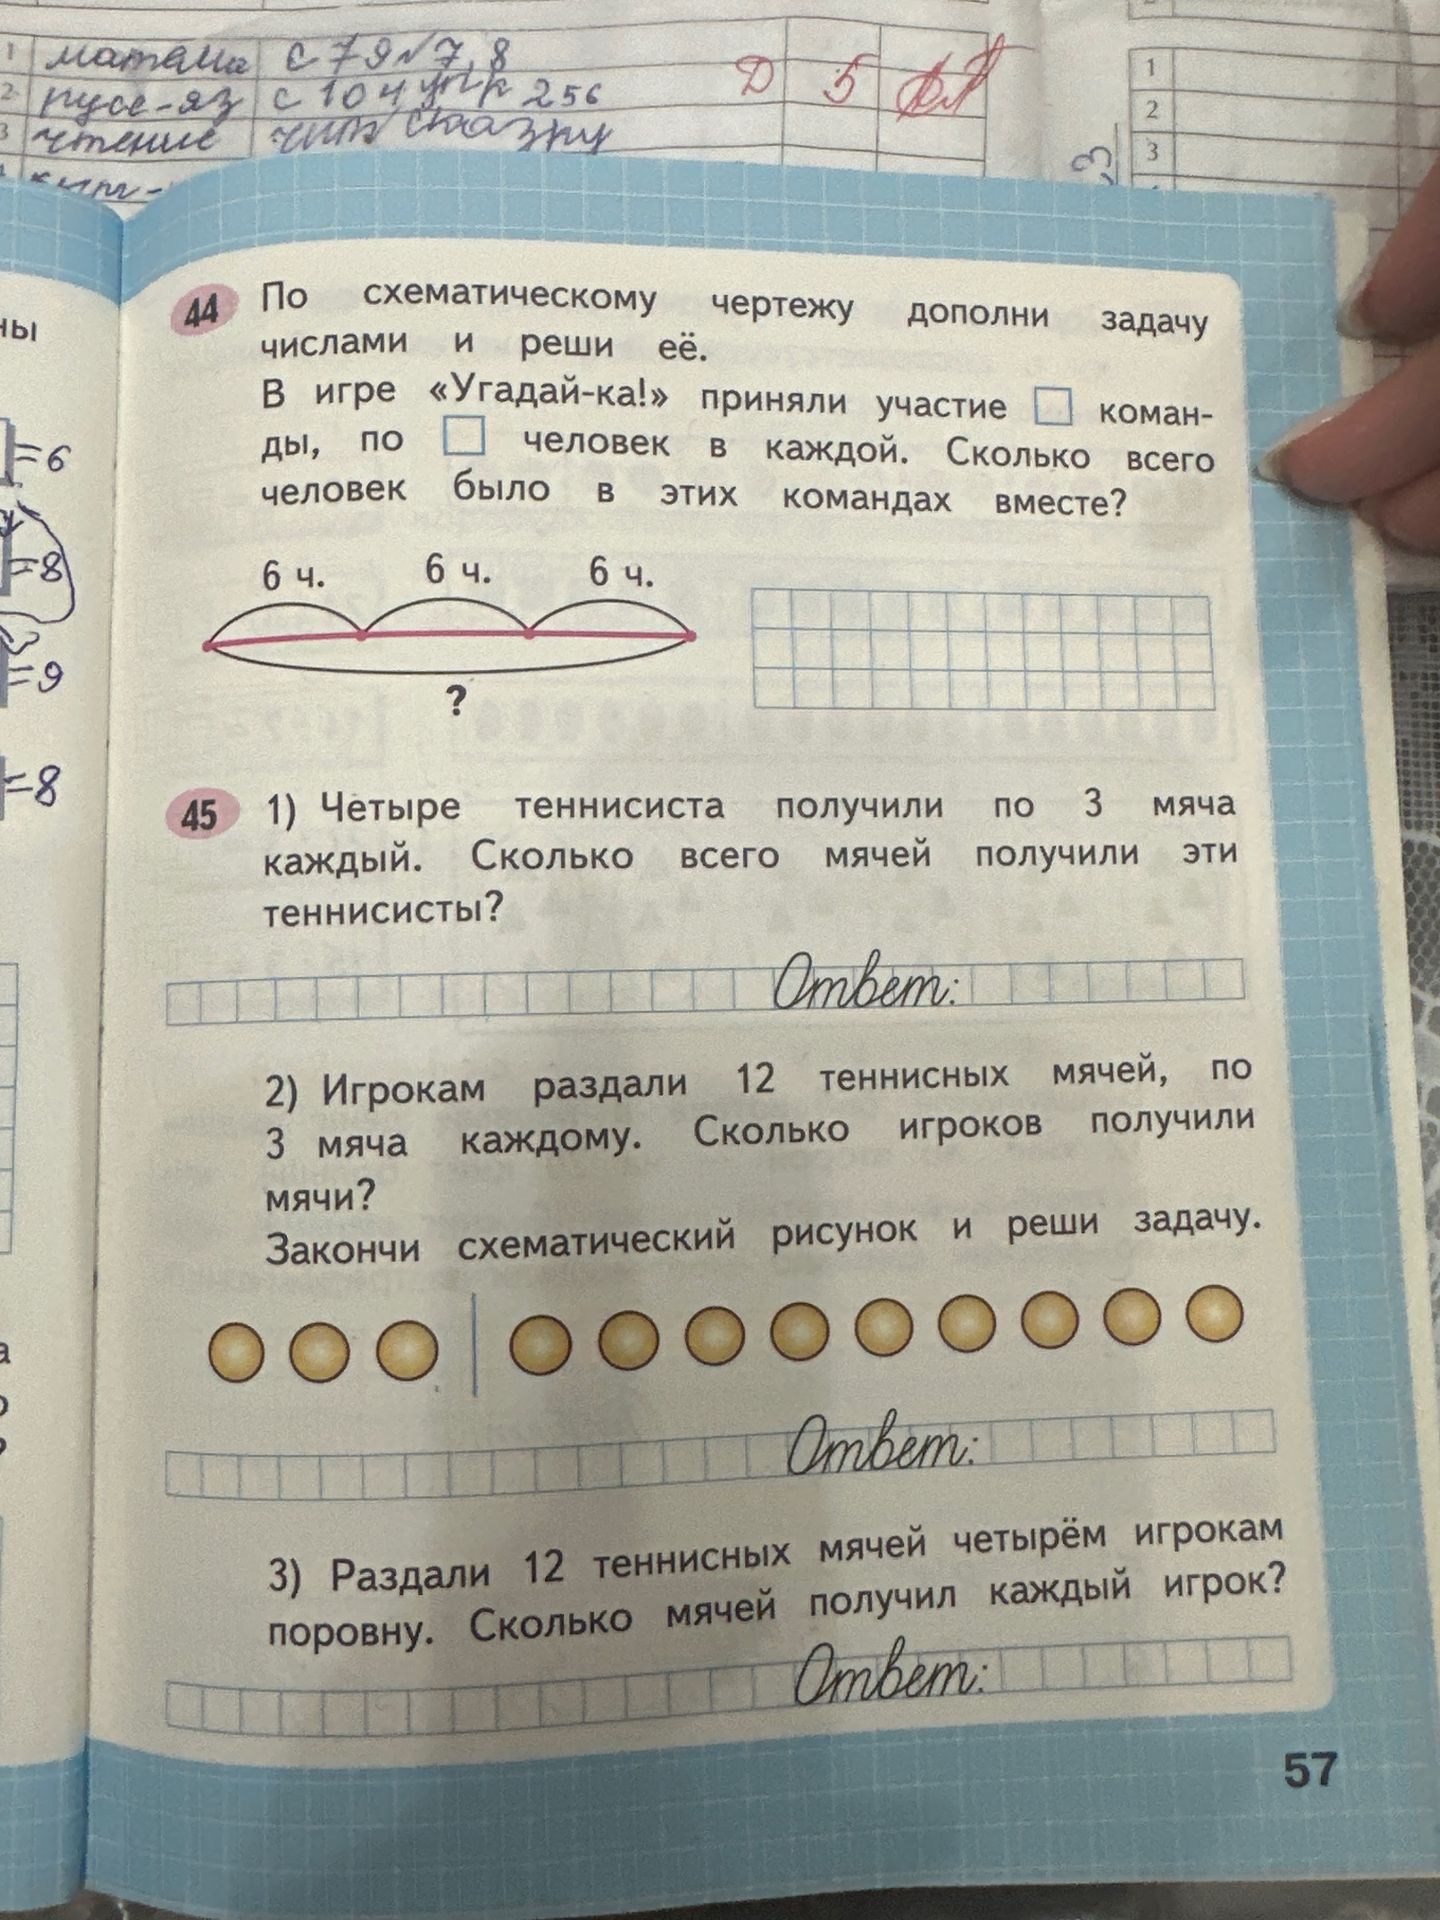 1 матема с 79 №7, 8
2 русс-яз с 104 упр 256 Д 5
3 чтение чит сказку
1
2
3
ны
=6
=8
=9
=8
44 По схематическому чертежу дополни задачу
числами и реши её.
В игре «Угадай-ка!» приняли участие коман-
ды, по человек в каждой. Сколько всего
человек было в этих командах вместе?
6 ч. 6 ч. 6 ч.
?
45 1) Четыре теннисиста получили по 3 мяча
каждый. Сколько всего мячей получили эти
теннисисты?
Ответ:
2) Игрокам раздали 12 теннисных мячей, по
3 мяча каждому. Сколько игроков получили
мячи?
Закончи схематический рисунок и реши задачу.
Ответ:
3) Раздали 12 теннисных мячей четырём игрокам
поровну. Сколько мячей получил каждый игрок?
Ответ:
57